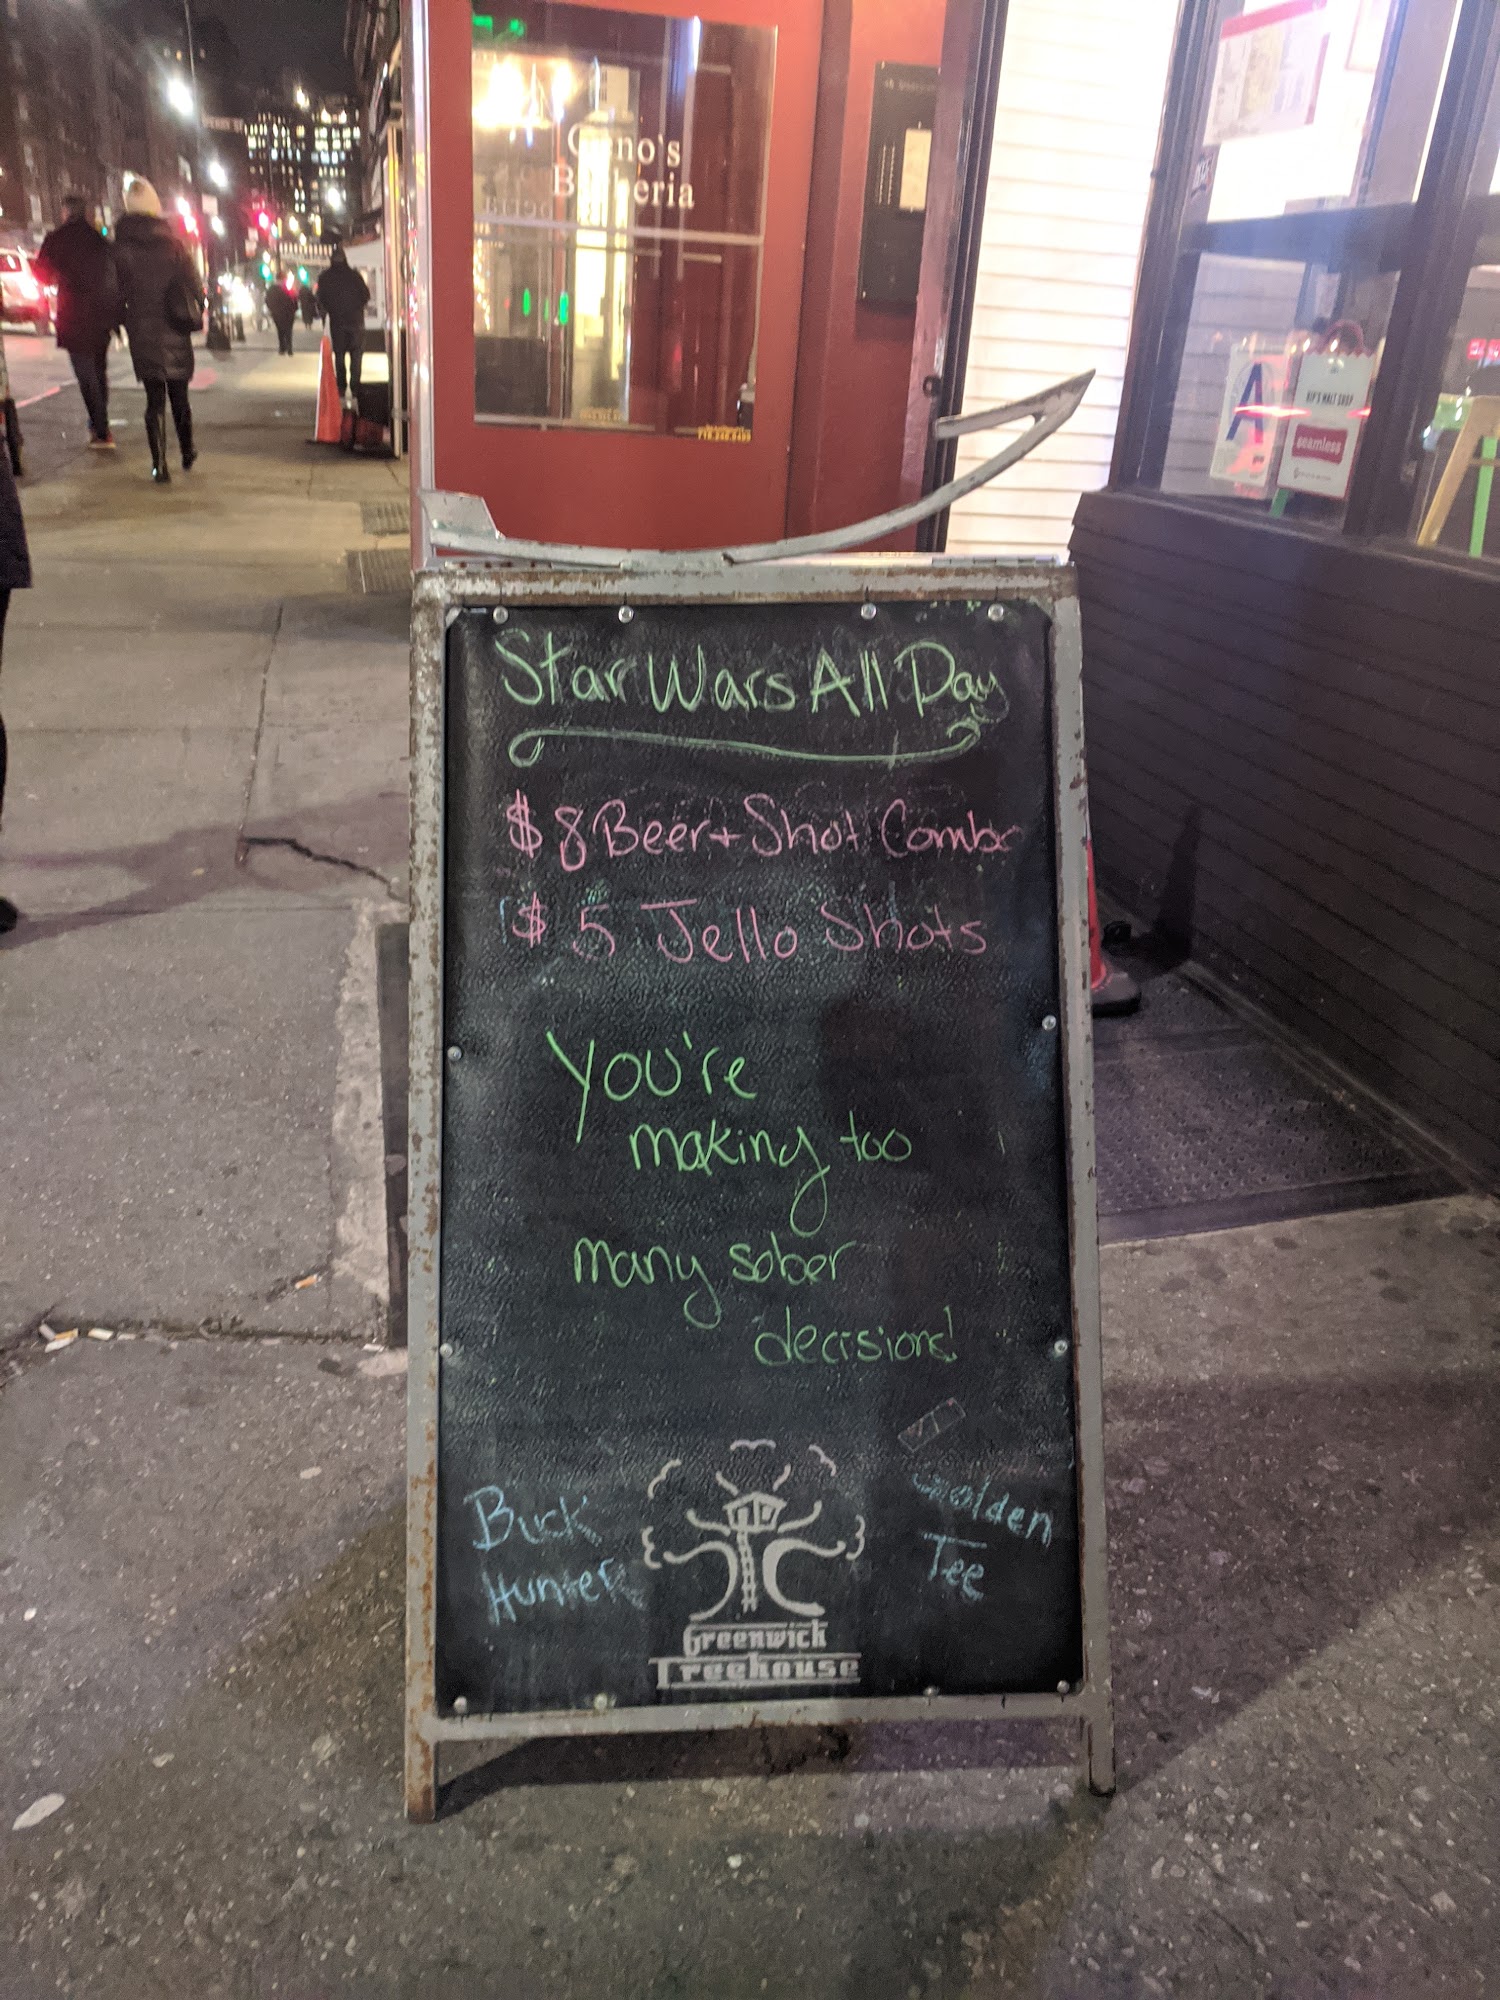 Geno's
Star Wars All Day
$8 Beer + Shot Combo
$5 Jello Shots
You're
making too
many sober
decisions!
Buck
Hunter
Golden
Tee
Greenwich
Treehouse
A
KIP'S MALT SHOP
seamless